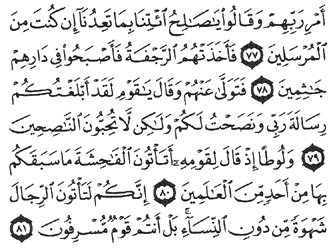 أَمْرِ رَبِّهِمْ وَقَالُوا۟ يَـٰصَـٰلِحُ ٱئْتِنَا بِمَا تَعِدُنَآ إِن كُنتَ مِنَ
ٱلْمُرْسَلِينَ ٧٧ فَأَخَذَتْهُمُ ٱلرَّجْفَةُ فَأَصْبَحُوا۟ فِى دَارِهِمْ
جَـٰثِمِينَ ٧٨ فَتَوَلَّىٰ عَنْهُمْ وَقَالَ يَـٰقَوْمِ لَقَدْ أَبْلَغْتُكُمْ
رِسَالَةَ رَبِّى وَنَصَحْتُ لَكُمْ وَلَـٰكِن لَّا تُحِبُّونَ ٱلنَّـٰصِحِينَ
٧٩ وَلُوطًا إِذْ قَالَ لِقَوْمِهِۦٓ أَتَأْتُونَ ٱلْفَـٰحِشَةَ مَا سَبَقَكُم
بِهَا مِنْ أَحَدٍ مِّنَ ٱلْعَـٰلَمِينَ ٨٠ إِنَّكُمْ لَتَأْتُونَ ٱلرِّجَالَ
شَهْوَةً مِّن دُونِ ٱلنِّسَآءِ ۚ بَلْ أَنتُمْ قَوْمٌ مُّسْرِفُونَ ٨١